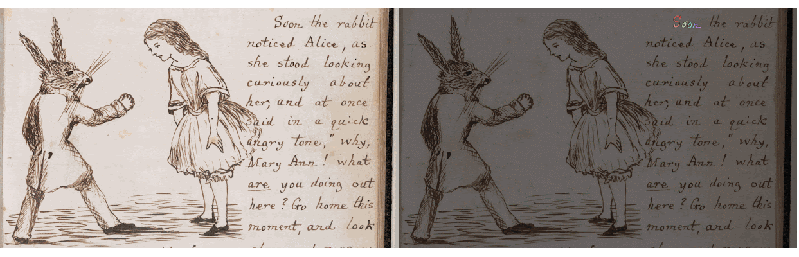 Soon the rabbit
noticed Alice, as
she stood looking
curiously about
her, and at once
said in a quick
angry tone, "why,
Mary Ann! what
are you doing out
here? Go home this
moment, and look
Soon the rabbit
noticed Alice, as
she stood looking
curiously about
her, and at once
said in a quick
angry tone, "why,
Mary Ann! what
are you doing out
here? Go home this
moment, and look